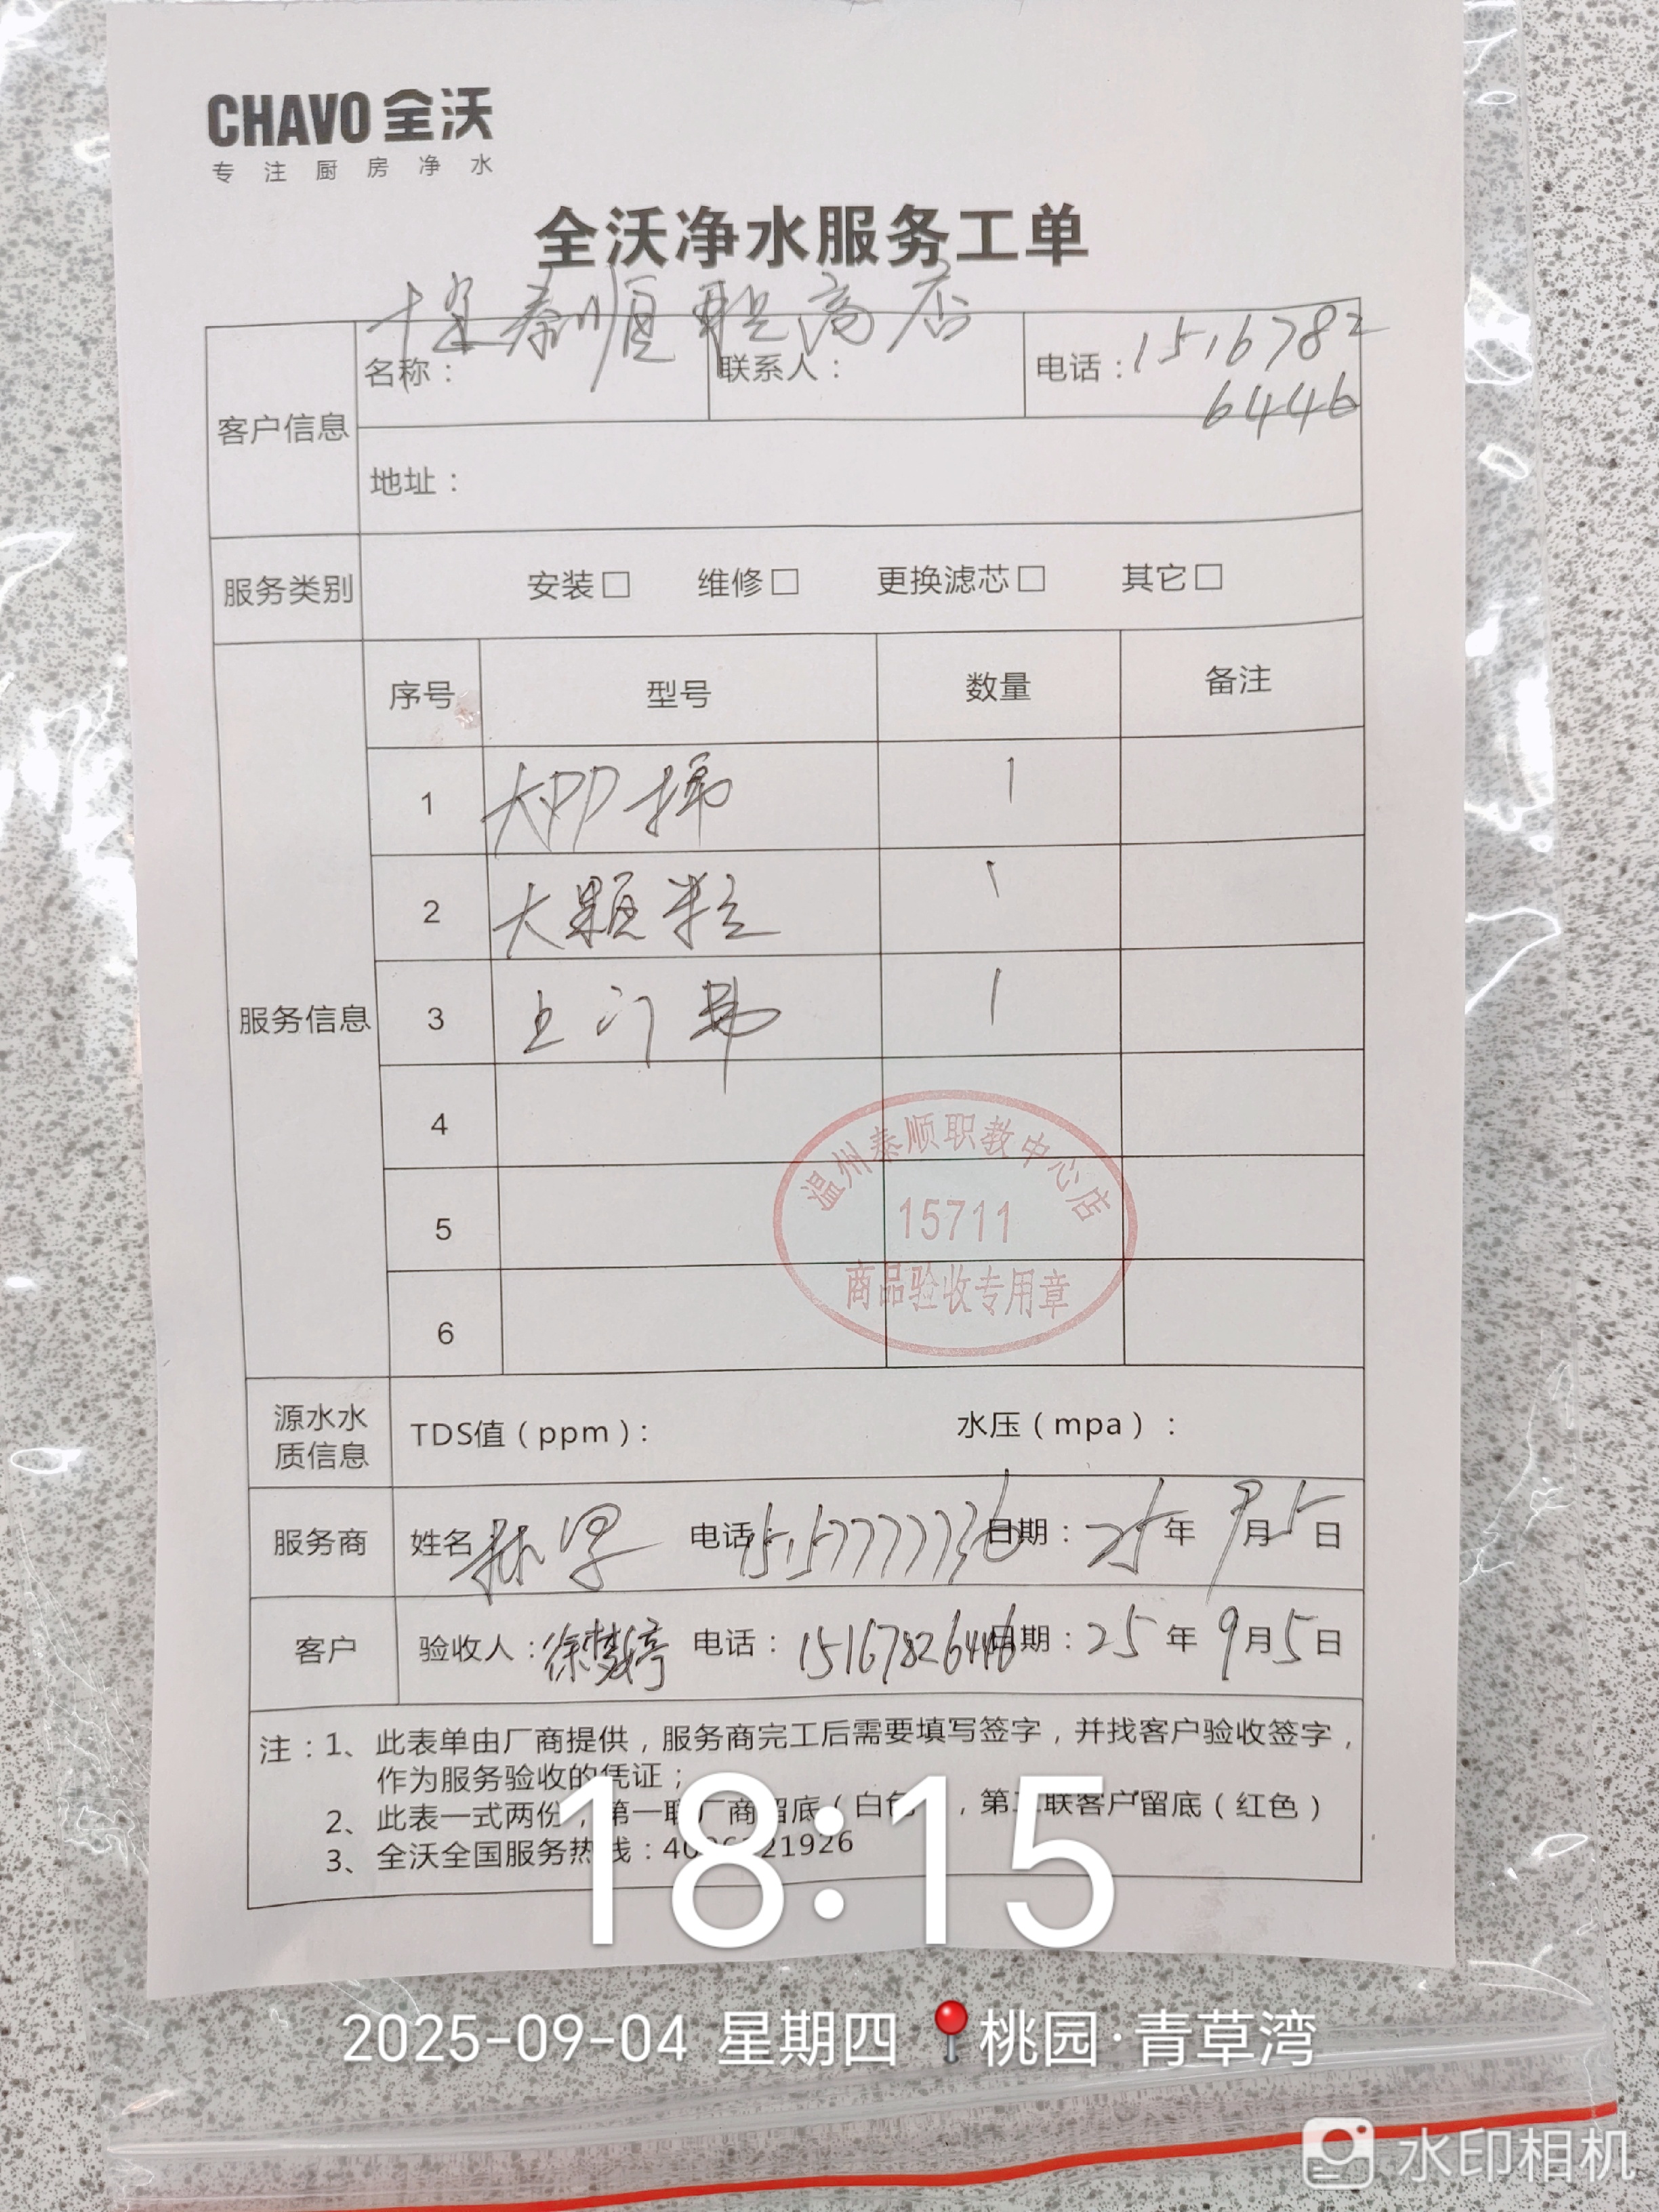 CHAVO 全沃
专注厨房净水
全沃净水服务工单
泰顺职高店
客户信息 名称: 联系人: 电话:1516782
6446
地址:
服务类别 安装□ 维修□ 更换滤芯□ 其它□
服务信息 序号 型号 数量 备注
1 大PP棉 1
2 大颗粒 1
3 上门费 1
4
5
6
温州泰顺职教中心店
15711
商品验收专用章
源水水质信息 TDS值(ppm): 水压(mpa):
服务商 姓名 电话: 日期:25年9月5日
客户 验收人:徐梦婷 电话:15167826446 日期:25年9月5日
注:1、此表单由厂商提供,服务商完工后需要填写签字,并找客户验收签字,
作为服务验收的凭证;
2、此表一式两份,第一联厂商留底(白色),第二联客户留底(红色)
3、全沃全国服务热线:21926
18:15
2025-09-04 星期四 桃园·青草湾
水印相机